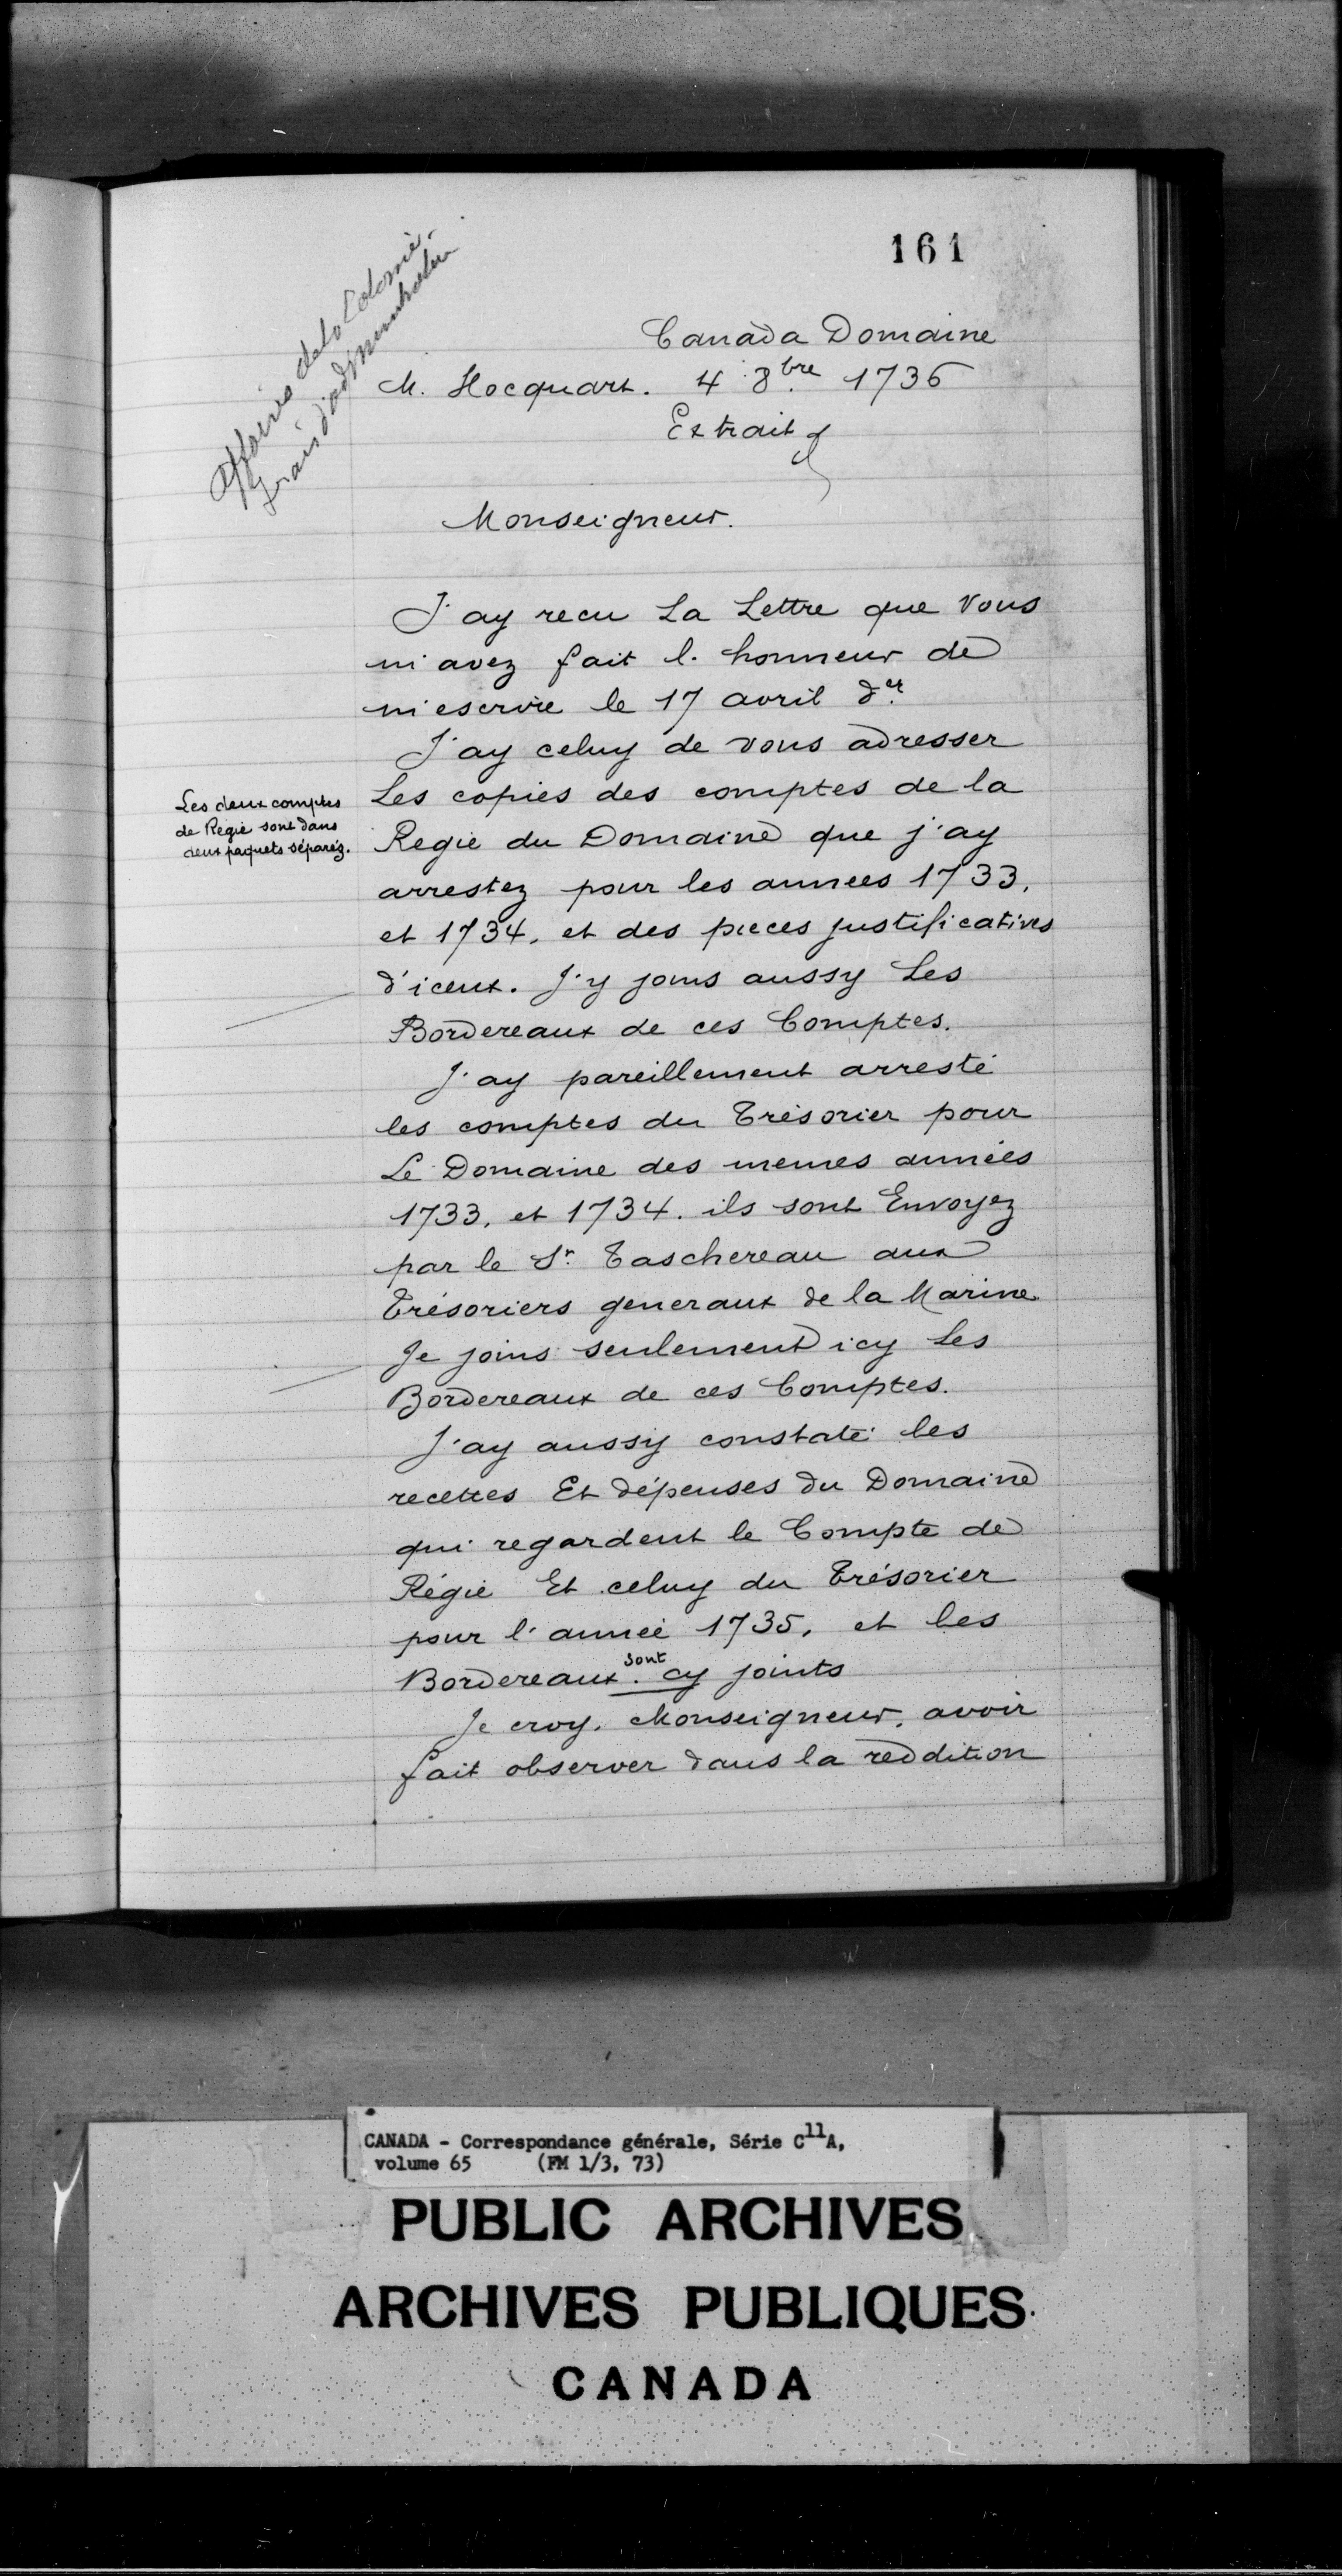 161
Affaires de la Colonie.
frais d'administration
Canada Domaine
M. Hocquart. 4 8.bre 1736
Extrait
Monseigneur.
J'ay recu La Lettre que Vous
m'avez fait l'honneur de
m'escrire le 17 avril d.er
J'ay celuy de vous adresser
Les copies des comptes de la
Les deux comptes
de Régie sont dans
deux paquets séparéz.
Regie du Domaine que j'ay
arrestez pour les annees 1733.
et 1734. et des pieces justificatives
d'iceux. J'y joins aussy Les
Bordereaux de ces Comptes.
J'ay pareillement arresté
les comptes du Trésorier pour
Le Domaine des memes années
1733. et 1734. ils sont Envoyez
par le Sr. Taschereau aux
Trésoriers generaux de la Marine
Je joins seulement icy Les
Bordereaux de ces Comptes.
J'ay aussy constaté les
recettes Et dépenses du Domaine
qui regardent le Compte de
Régie Et celuy du Trésorier
pour l'année 1735. et les
Bordereaux sont cy joints
Je croy. Monseigneur. avoir
fait observer dans la reddition
CANADA - Correspondance générale, Série C11A,
volume 65 (FM 1/3, 73)
PUBLIC ARCHIVES
ARCHIVES PUBLIQUES
CANADA